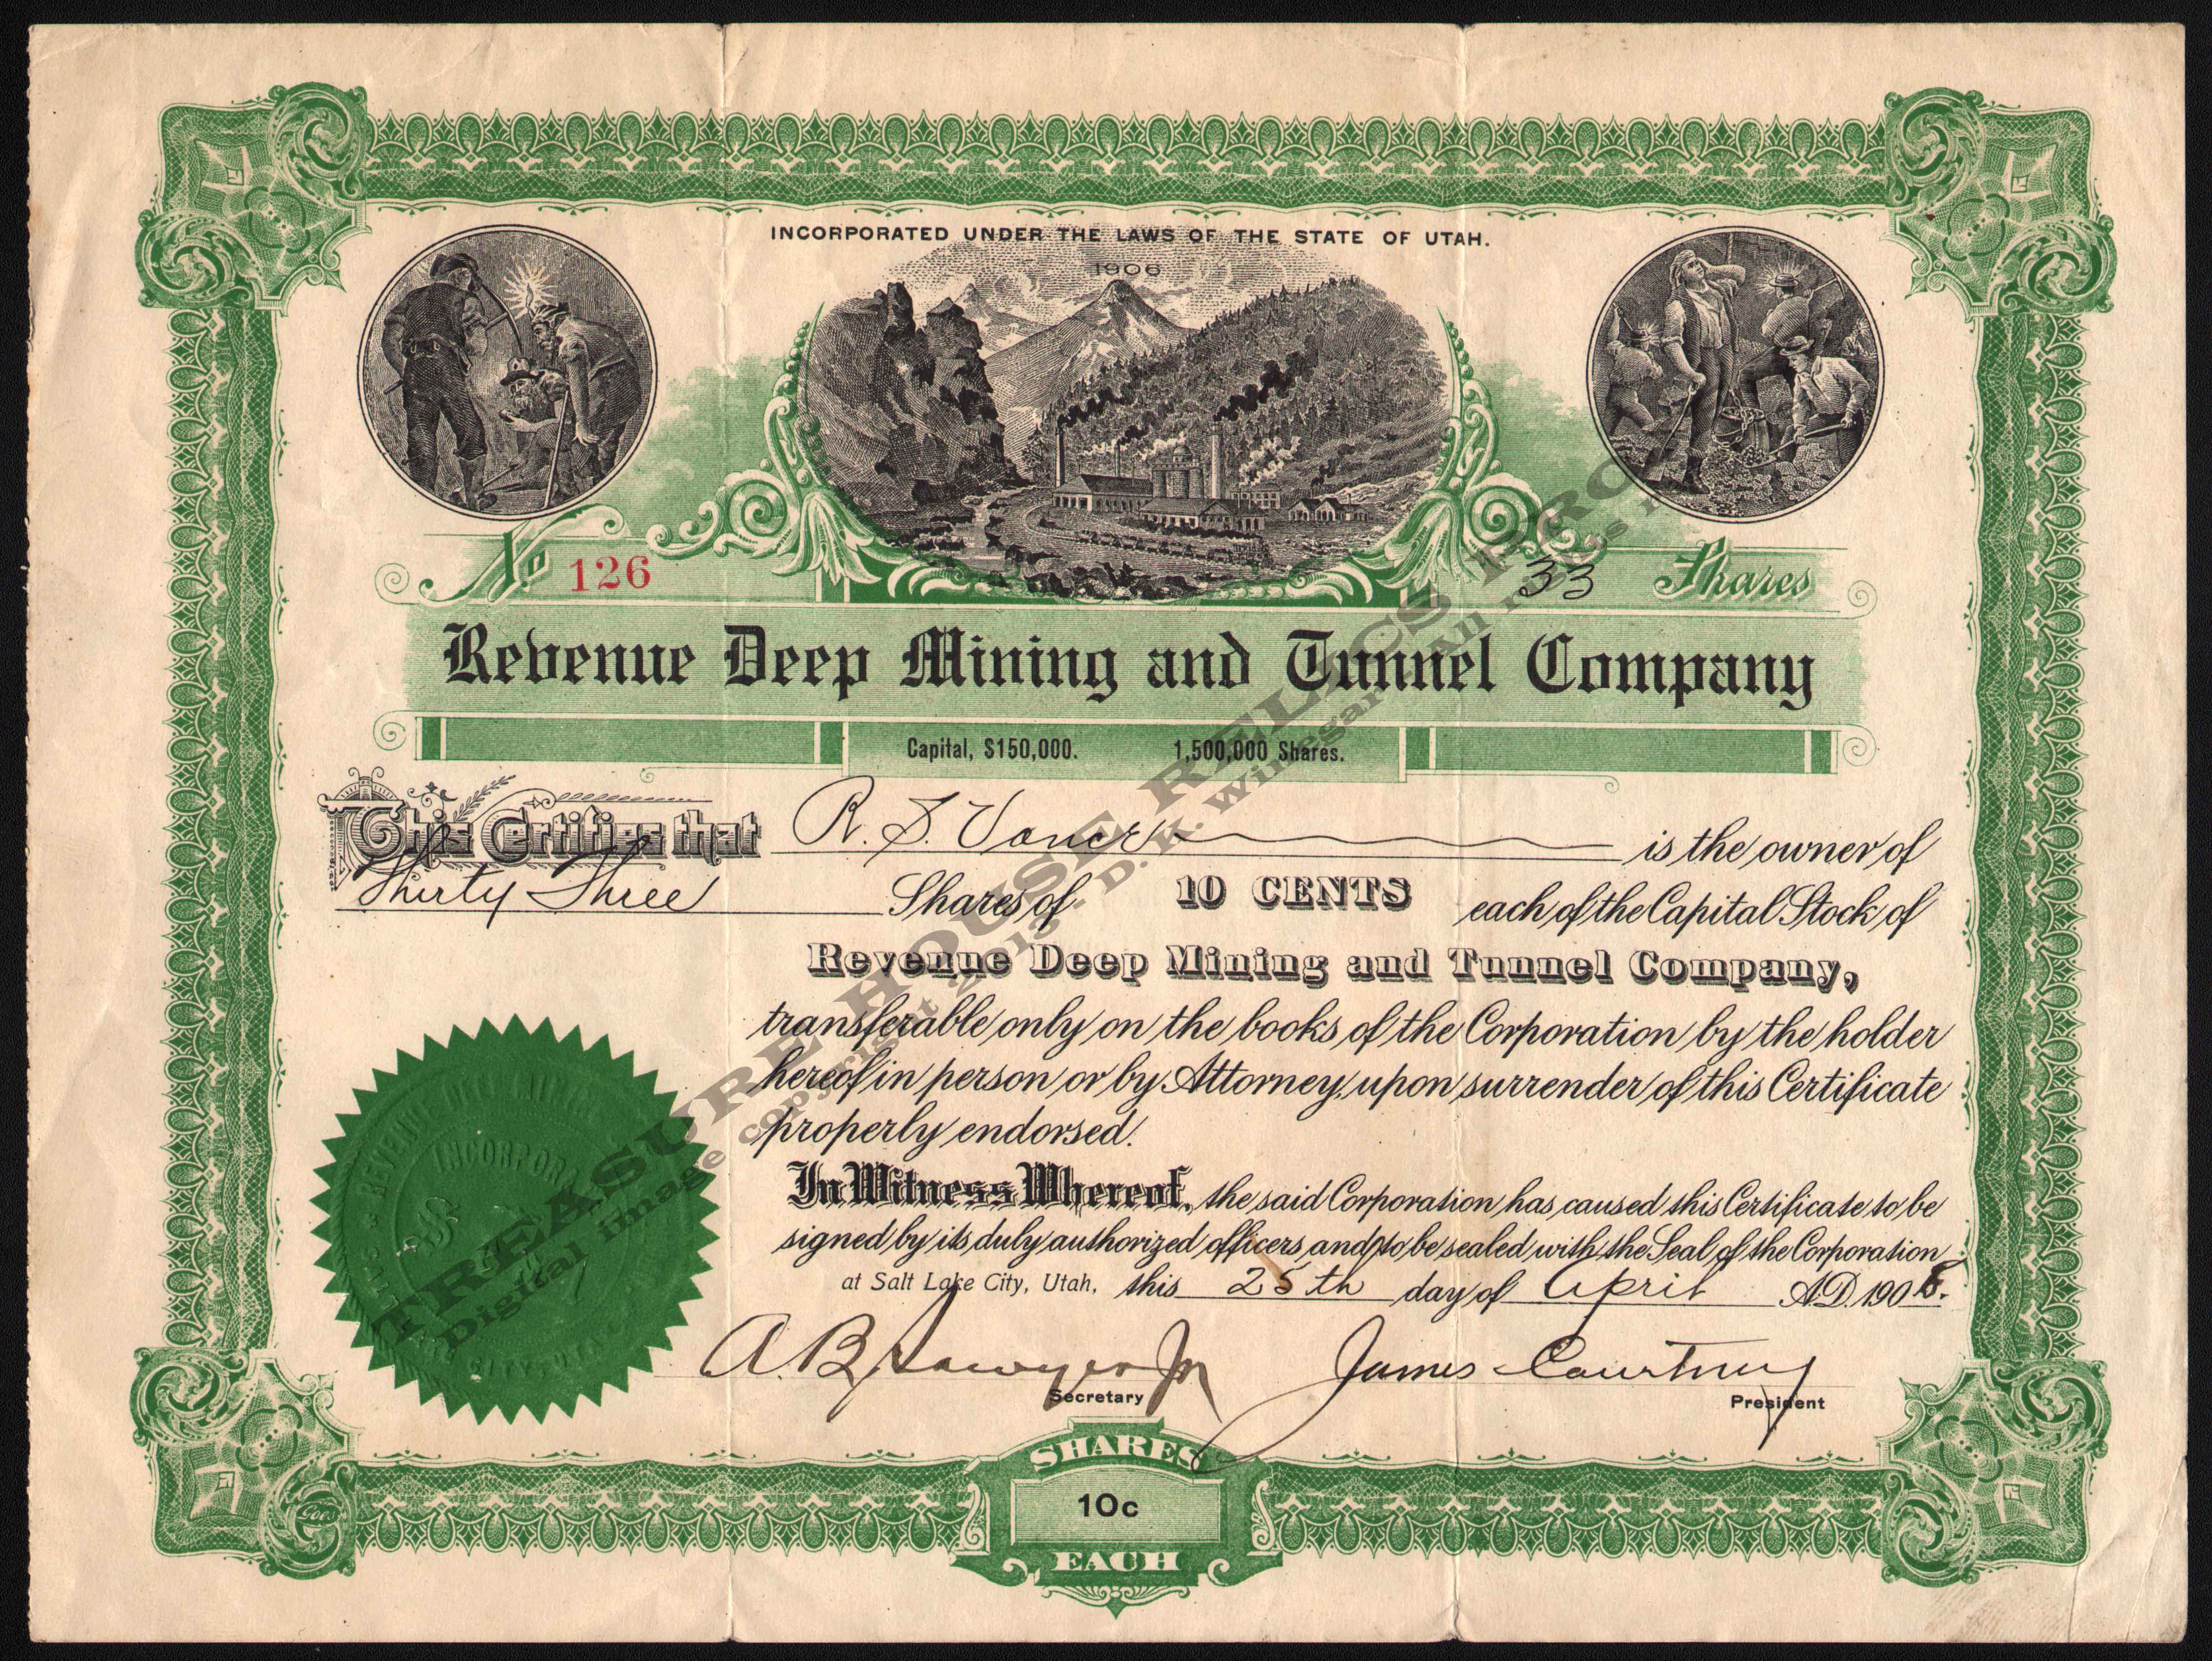 INCORPORATED UNDER THE LAWS OF THE STATE OF UTAH.
1906
No 126
33 Shares
Revenue Deep Mining and Tunnel Company
Capital, $150,000. 1,500,000 Shares.
This Certifies that R. S. is the owner of
Thirty Three Shares of 10 CENTS each of the Capital Stock of
Revenue Deep Mining and Tunnel Company,
transferable only on the books of the Corporation by the holder
hereof in person or by Attorney, upon surrender of this Certificate
properly endorsed.
In Witness Whereof, the said Corporation has caused this Certificate to be
signed by its duly authorized officers, and to be sealed with the Seal of the Corporation
at Salt Lake City, Utah, this 25th day of April A.D. 190
A. B. Sawyer Jr James Courtney
Secretary President
SHARES
10c
EACH
Goes
INCORPORA
TREASURE HOUSE RELICS
Digital image copyright D. K. All